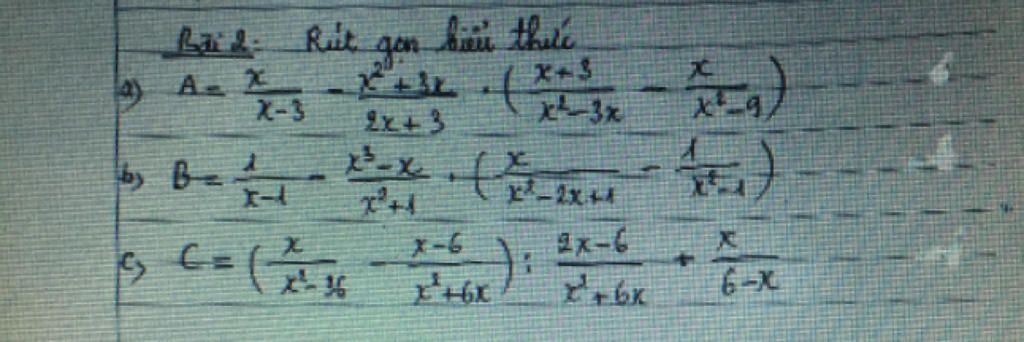 Bài 2: Rút gọn biểu thức
a) A = x/(x-3) - (x²+3x)/(2x+3) · ((x+3)/(x²-3x) - x/(x²-9))
b) B = 1/(x-1) - (x³-x)/(x²+1) · (x/(x²-2x+1) - 1/(x²-1))
c) C = (x/(x²-36) - (x-6)/(x²+6x)) : (2x-6)/(x²+6x) + x/(6-x)